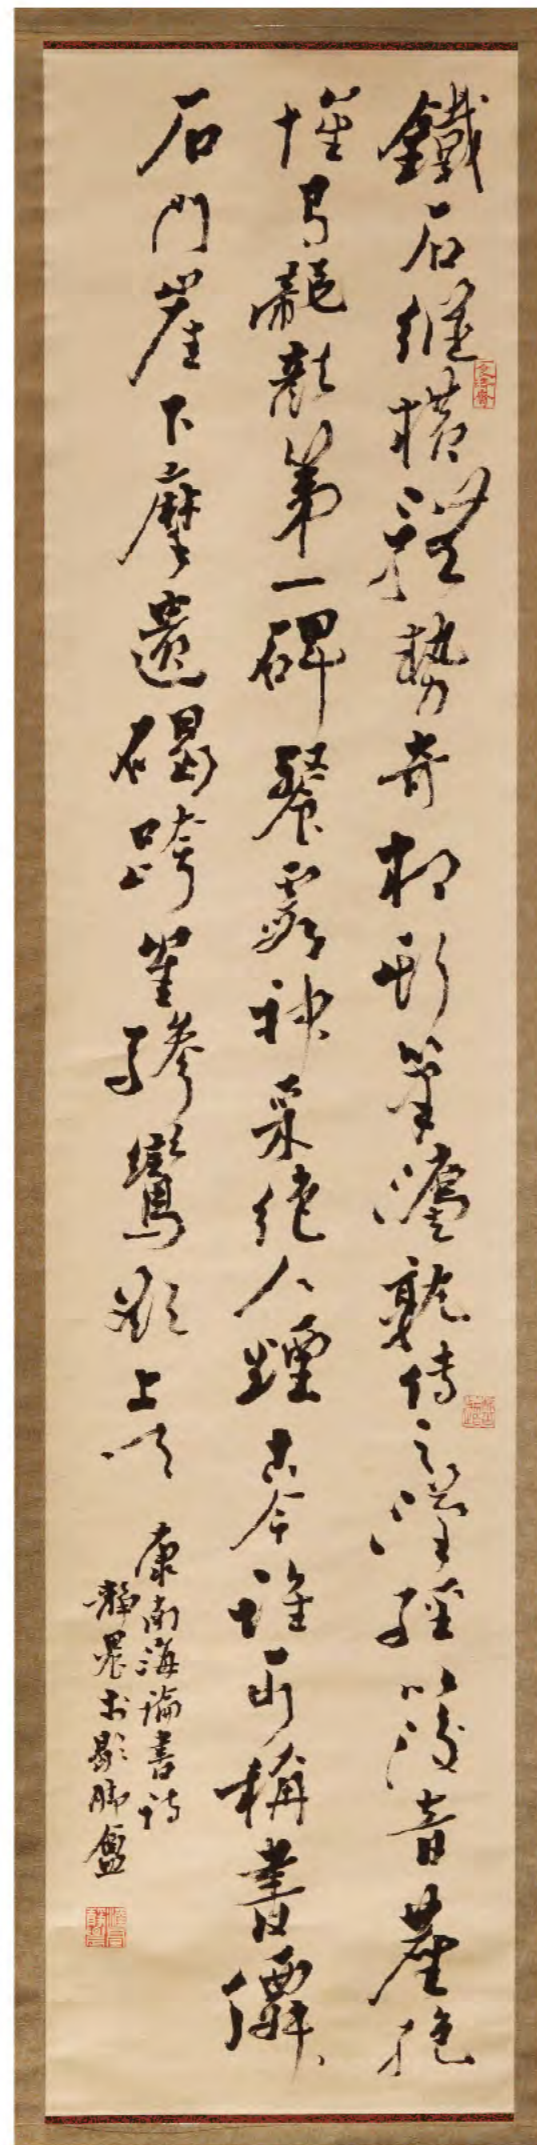 鐵石縱橫體勢奇相斯筆灋孰傳之漢經以後音塵絕
惟有龍顏第一碑餐霞神采絕人煙古今誰可稱書僊
石門崖下摩遺碣跨隺驂鸞欲上天
康南海論書詩
靜農於歇腳盦